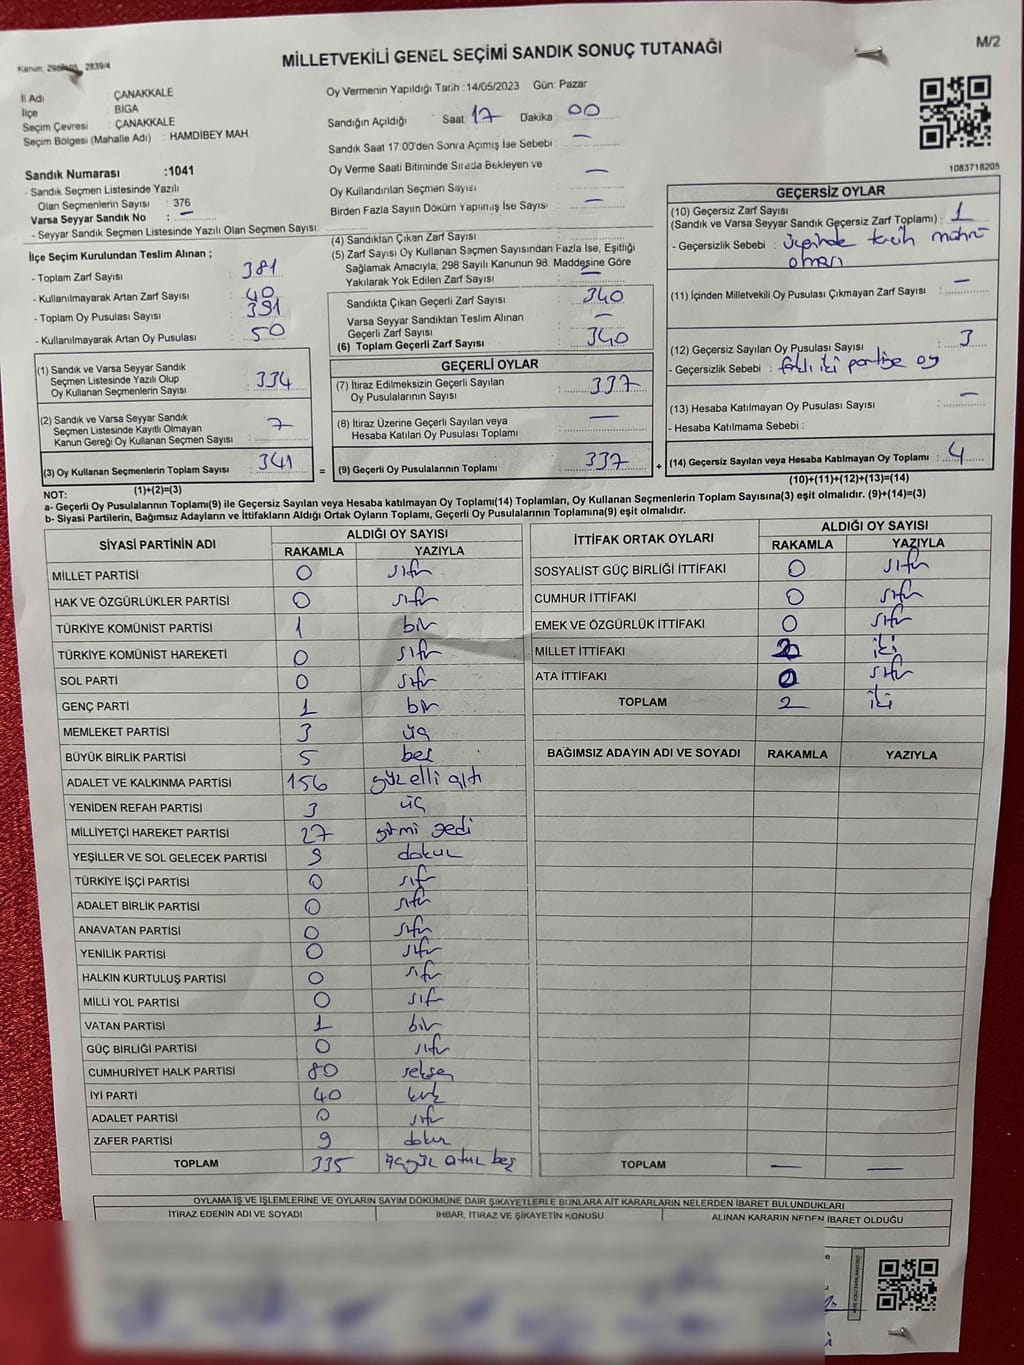 Kanun: 298/105, 2839/4
MİLLETVEKİLİ GENEL SEÇİMİ SANDIK SONUÇ TUTANAĞI
M/2
İl Adı : ÇANAKKALE
İlçe : BİGA
Seçim Çevresi : ÇANAKKALE
Seçim Bölgesi (Mahalle Adı) : HAMDİBEY MAH.
Oy Vermenin Yapıldığı Tarih :14/05/2023 Gün: Pazar
Sandığın Açıldığı Saat 17 Dakika 00
Sandık Saat 17:00'den Sonra Açımış İse Sebebi : —
Oy Verme Saati Bitiminde Sırada Bekleyen ve
Oy Kullandırılan Seçmen Sayısı : —
Birden Fazla Sayım Döküm Yapılmış İse Sayısı : —
1083718205
Sandık Numarası :1041
- Sandık Seçmen Listesinde Yazılı
Olan Seçmenlerin Sayısı : 376
Varsa Seyyar Sandık No : —
- Seyyar Sandık Seçmen Listesinde Yazılı Olan Seçmen Sayısı:
İlçe Seçim Kurulundan Teslim Alınan ;
- Toplam Zarf Sayısı : 381
- Kullanılmayarak Artan Zarf Sayısı : 40
- Toplam Oy Pusulası Sayısı : 391
- Kullanılmayarak Artan Oy Pusulası : 50
(1) Sandık ve Varsa Seyyar Sandık
Seçmen Listesinde Yazılı Olup
Oy Kullanan Seçmenlerin Sayısı : 334
(2) Sandık ve Varsa Seyyar Sandık
Seçmen Listesinde Kayıtlı Olmayan
Kanun Gereği Oy Kullanan Seçmen Sayısı : 7
(3) Oy Kullanan Seçmenlerin Toplam Sayısı : 341
(1)+(2)=(3)
(4) Sandıktan Çıkan Zarf Sayısı :
(5) Zarf Sayısı Oy Kullanan Seçmen Sayısından Fazla İse, Eşitliği
Sağlamak Amacıyla, 298 Sayılı Kanunun 98. Maddesine Göre
Yakılarak Yok Edilen Zarf Sayısı : —
Sandıkta Çıkan Geçerli Zarf Sayısı : 340
Varsa Seyyar Sandıktan Teslim Alınan
Geçerli Zarf Sayısı : —
(6) Toplam Geçerli Zarf Sayısı : 340
GEÇERLİ OYLAR
(7) İtiraz Edilmeksizin Geçerli Sayılan
Oy Pusulalarının Sayısı : 337
(8) İtiraz Üzerine Geçerli Sayılan veya
Hesaba Katılan Oy Pusulası Toplamı : —
= (9) Geçerli Oy Pusulalarının Toplamı : 337
GEÇERSİZ OYLAR
(10) Geçersiz Zarf Sayısı
(Sandık ve Varsa Seyyar Sandık Geçersiz Zarf Toplamı) : 1
- Geçersizlik Sebebi : üzerinde tercih mührü
olması
(11) İçinden Milletvekili Oy Pusulası Çıkmayan Zarf Sayısı : —
(12) Geçersiz Sayılan Oy Pusulası Sayısı : 3
- Geçersizlik Sebebi : farklı iki partiye oy
(13) Hesaba Katılmayan Oy Pusulası Sayısı : —
- Hesaba Katılmama Sebebi :
+ (14) Geçersiz Sayılan veya Hesaba Katılmayan Oy Toplamı : 4
(10)+(11)+(12)+(13)=(14)
NOT:
a- Geçerli Oy Pusulalarının Toplamı(9) ile Geçersiz Sayılan veya Hesaba katılmayan Oy Toplamı(14) Toplamları, Oy Kullanan Seçmenlerin Toplam Sayısına(3) eşit olmalıdır. (9)+(14)=(3)
b- Siyasi Partilerin, Bağımsız Adayların ve İttifakların Aldığı Ortak Oyların Toplamı, Geçerli Oy Pusulalarının Toplamına(9) eşit olmalıdır.
SİYASİ PARTİNİN ADI ALDIĞI OY SAYISI
RAKAMLA YAZIYLA
MİLLET PARTİSİ 0 sıfır
HAK VE ÖZGÜRLÜKLER PARTİSİ 0 sıfır
TÜRKİYE KOMÜNİST PARTİSİ 1 bir
TÜRKİYE KOMÜNİST HAREKETİ 0 sıfır
SOL PARTİ 0 sıfır
GENÇ PARTİ 1 bir
MEMLEKET PARTİSİ 3 üç
BÜYÜK BİRLİK PARTİSİ 5 beş
ADALET VE KALKINMA PARTİSİ 156 yüzelli altı
YENİDEN REFAH PARTİSİ 3 üç
MİLLİYETÇİ HAREKET PARTİSİ 27 yirmi yedi
YEŞİLLER VE SOL GELECEK PARTİSİ 9 dokuz
TÜRKİYE İŞÇİ PARTİSİ 0 sıfır
ADALET BİRLİK PARTİSİ 0 sıfır
ANAVATAN PARTİSİ 0 sıfır
YENİLİK PARTİSİ 0 sıfır
HALKIN KURTULUŞ PARTİSİ 0 sıfır
MİLLİ YOL PARTİSİ 0 sıfır
VATAN PARTİSİ 1 bir
GÜÇ BİRLİĞİ PARTİSİ 0 sıfır
CUMHURİYET HALK PARTİSİ 80 seksen
İYİ PARTİ 40 kırk
ADALET PARTİSİ 0 sıfır
ZAFER PARTİSİ 9 dokuz
TOPLAM 335 üçyüz otuz beş
İTTİFAK ORTAK OYLARI ALDIĞI OY SAYISI
RAKAMLA YAZIYLA
SOSYALİST GÜÇ BİRLİĞİ İTTİFAKI 0 sıfır
CUMHUR İTTİFAKI 0 sıfır
EMEK VE ÖZGÜRLÜK İTTİFAKI 0 sıfır
MİLLET İTTİFAKI 2 iki
ATA İTTİFAKI 0 sıfır
TOPLAM 2 iki
BAĞIMSIZ ADAYIN ADI VE SOYADI RAKAMLA YAZIYLA
TOPLAM — —
OYLAMA İŞ VE İŞLEMLERİNE VE OYLARIN SAYIM DÖKÜMÜNE DAİR ŞİKAYETLERLE BUNLARA AİT KARARLARIN NELERDEN İBARET BULUNDUKLARI
İTİRAZ EDENİN ADI VE SOYADI İHBAR, İTİRAZ VE ŞİKAYETİN KONUSU ALINAN KARARIN NEDEN İBARET OLDUĞU